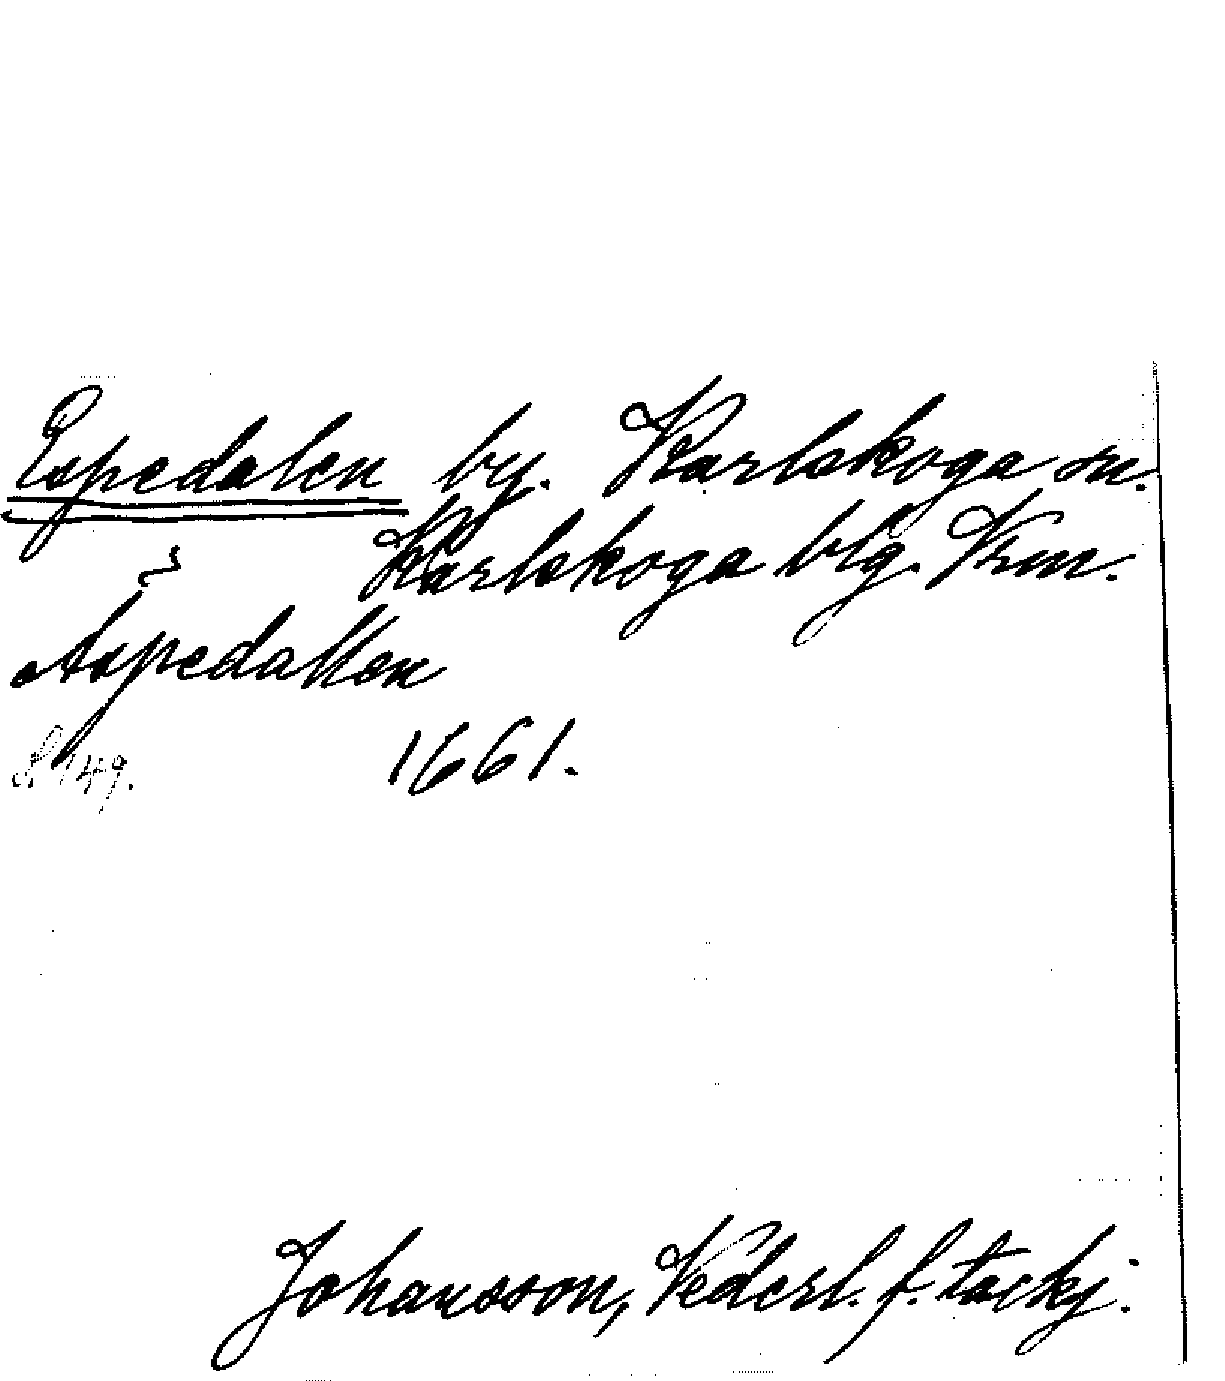 Espedalen by. Karlskoga sn.
Karlskoga blg. Vrm.
Aspedallen
S. 149. 1661.
Johansson, Vederl. f. tackj.